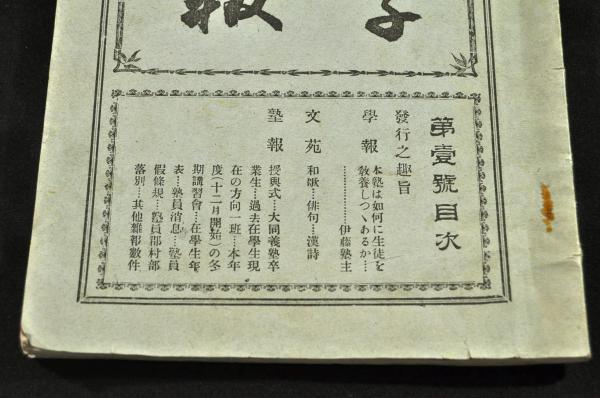 學報
第壹號目次
發行之趣旨
學報 本塾は如何に生徒を
敎養しつゝあるか……
……………伊藤塾主
文苑 和歌…俳句…漢詩
塾報 授與式…大同義塾卒
業生…過去在學生現
在の方向一班…本年
度(十二月開始)の冬
期講習會…在學生年
表…塾員消息…塾員
假條規…塾員郡村部
落別…其他雜報數件